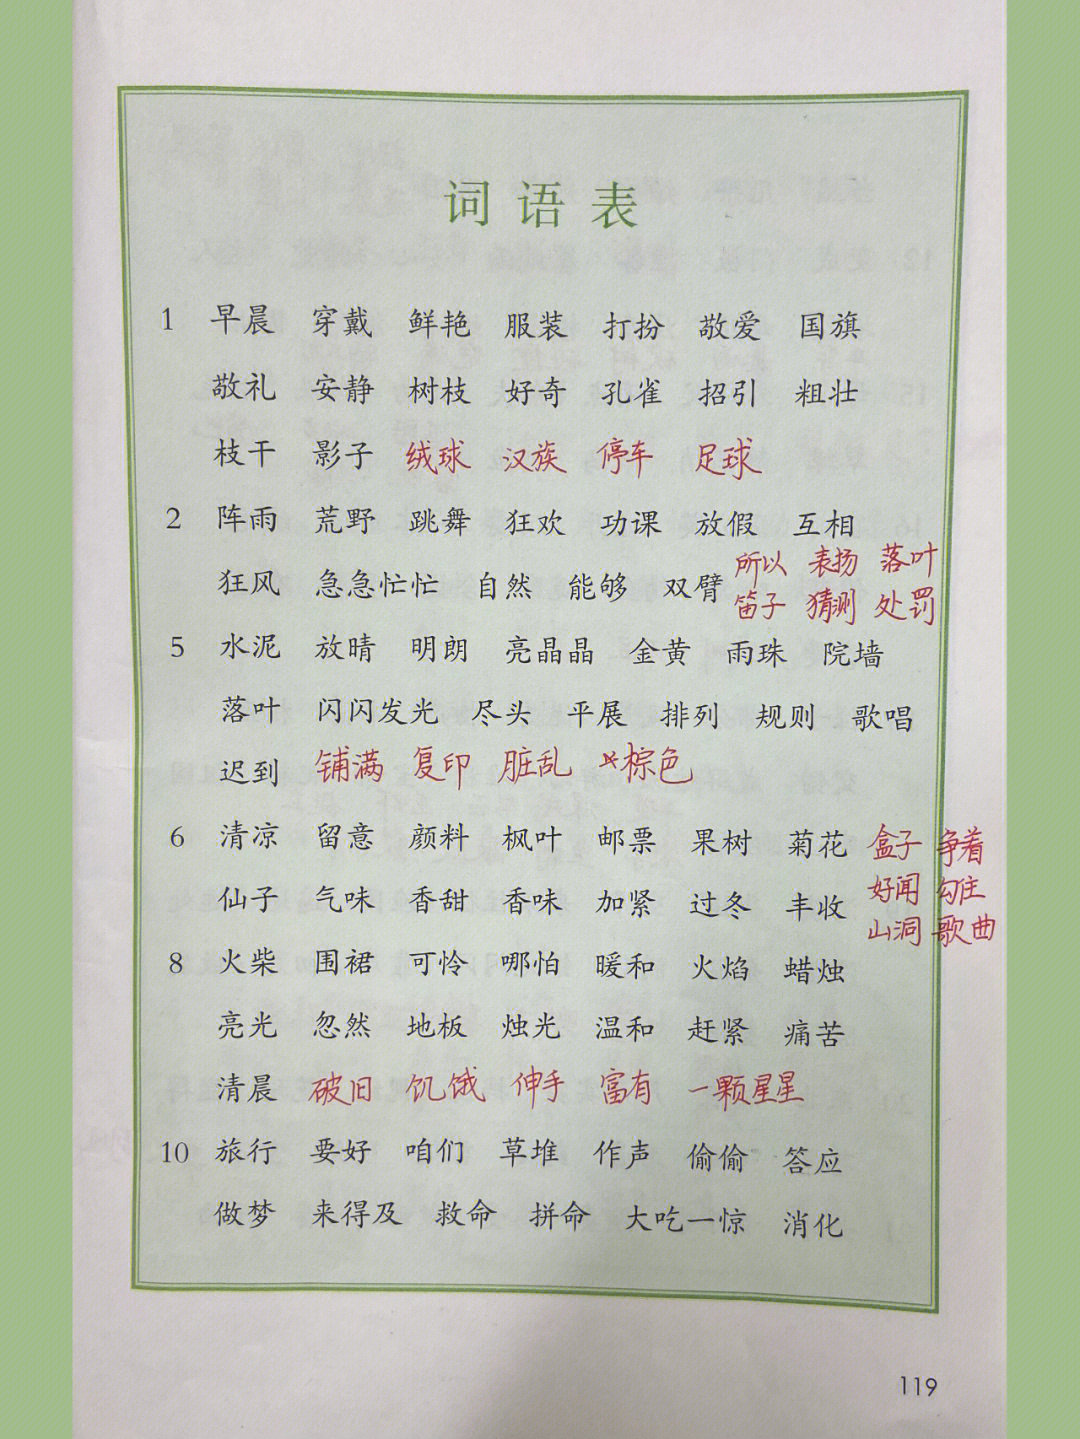 词语表
1 早晨 穿戴 鲜艳 服装 打扮 敬爱 国旗
敬礼 安静 树枝 好奇 孔雀 招引 粗壮
枝干 影子 绒球 汉族 停车 足球
2 阵雨 荒野 跳舞 狂欢 功课 放假 互相
所以 表扬 落叶
狂风 急急忙忙 自然 能够 双臂
笛子 猜测 处罚
5 水泥 放晴 明朗 亮晶晶 金黄 雨珠 院墙
落叶 闪闪发光 尽头 平展 排列 规则 歌唱
迟到 铺满 复印 脏乱 *棕色
6 清凉 留意 颜料 枫叶 邮票 果树 菊花 盒子 争着
好闻 勾住
仙子 气味 香甜 香味 加紧 过冬 丰收
山洞 歌曲
8 火柴 围裙 可怜 哪怕 暖和 火焰 蜡烛
亮光 忽然 地板 烛光 温和 赶紧 痛苦
清晨 破旧 饥饿 伸手 富有 一颗星星
10 旅行 要好 咱们 草堆 作声 偷偷 答应
做梦 来得及 救命 拼命 大吃一惊 消化
119